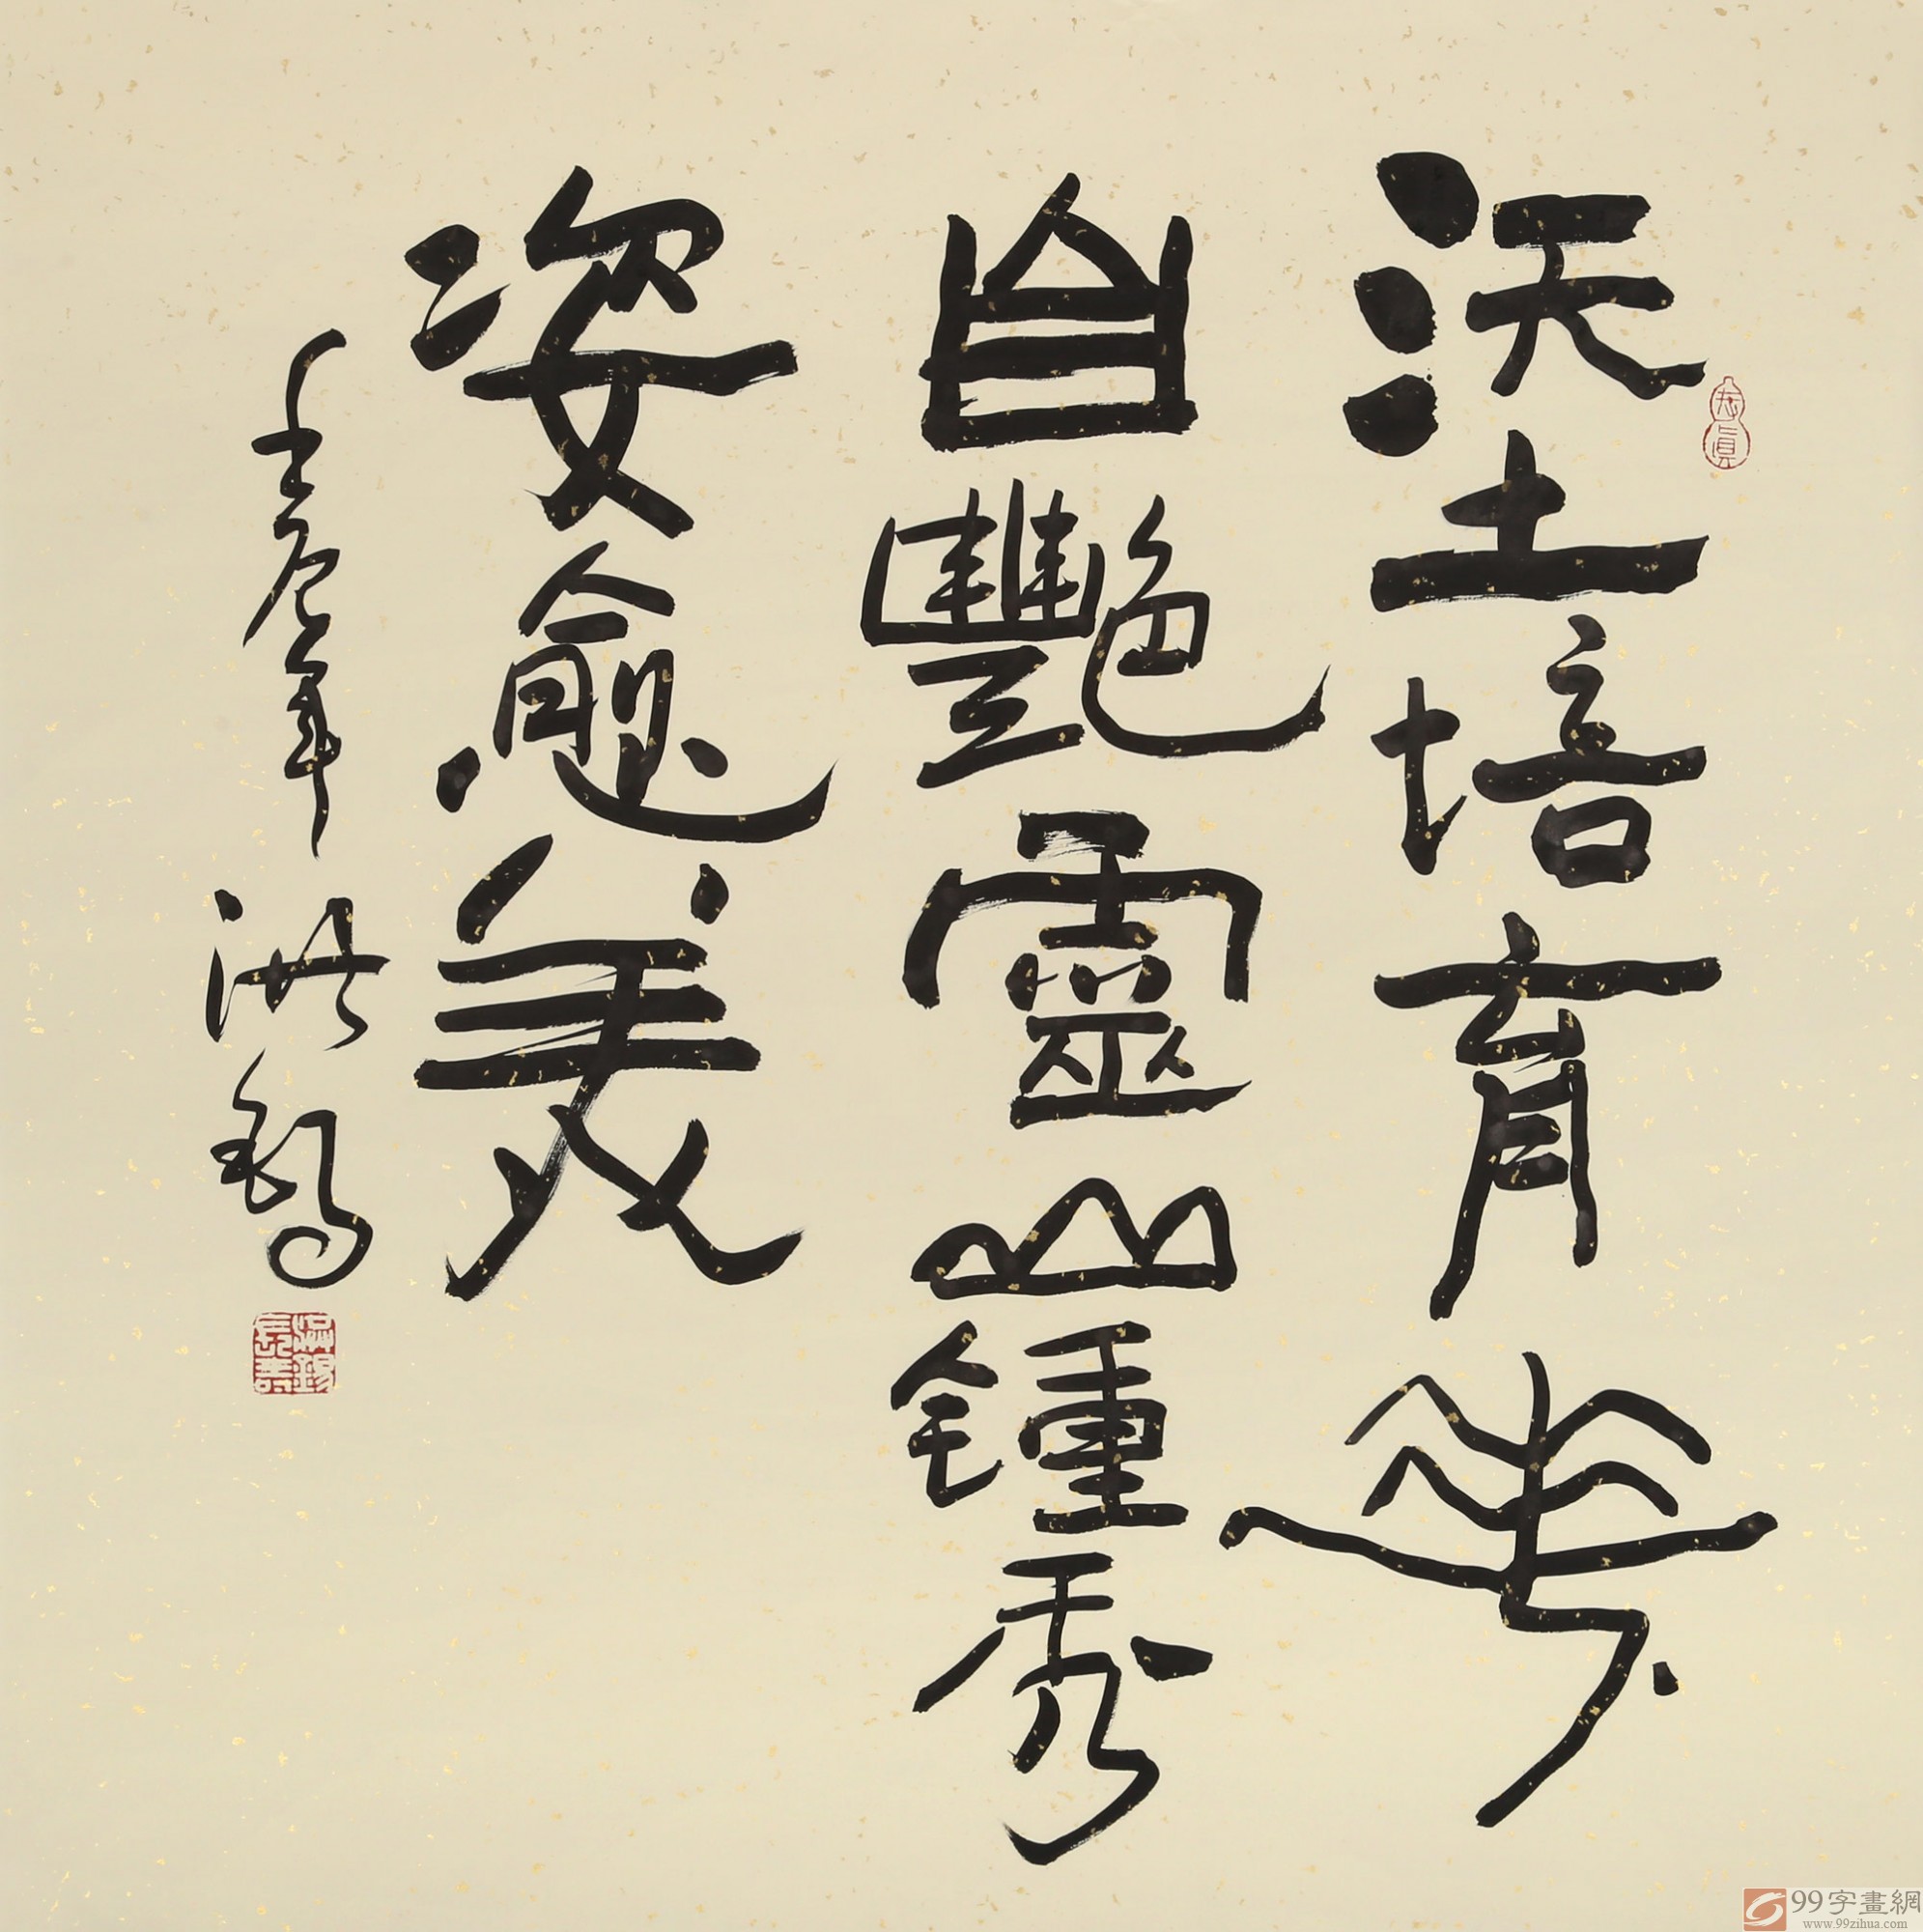 沃土培育華
自艷靈山鍾秀
姿愈美
壬唇年 洪錫
99字畫網
www.99zihua.com